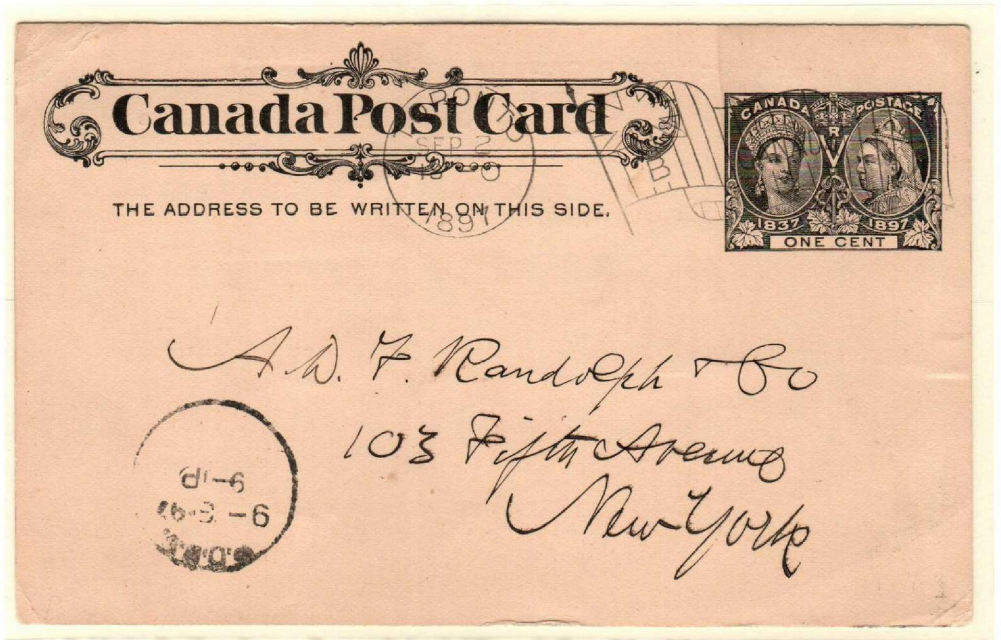 Canada Post Card
THE ADDRESS TO BE WRITTEN ON THIS SIDE.
TORONTO
SEP 2
1897
CANADA POSTAGE
V R I
1837 1897
ONE CENT
A. D. F. Randolph & Co
103 Fifth Avenue
New York